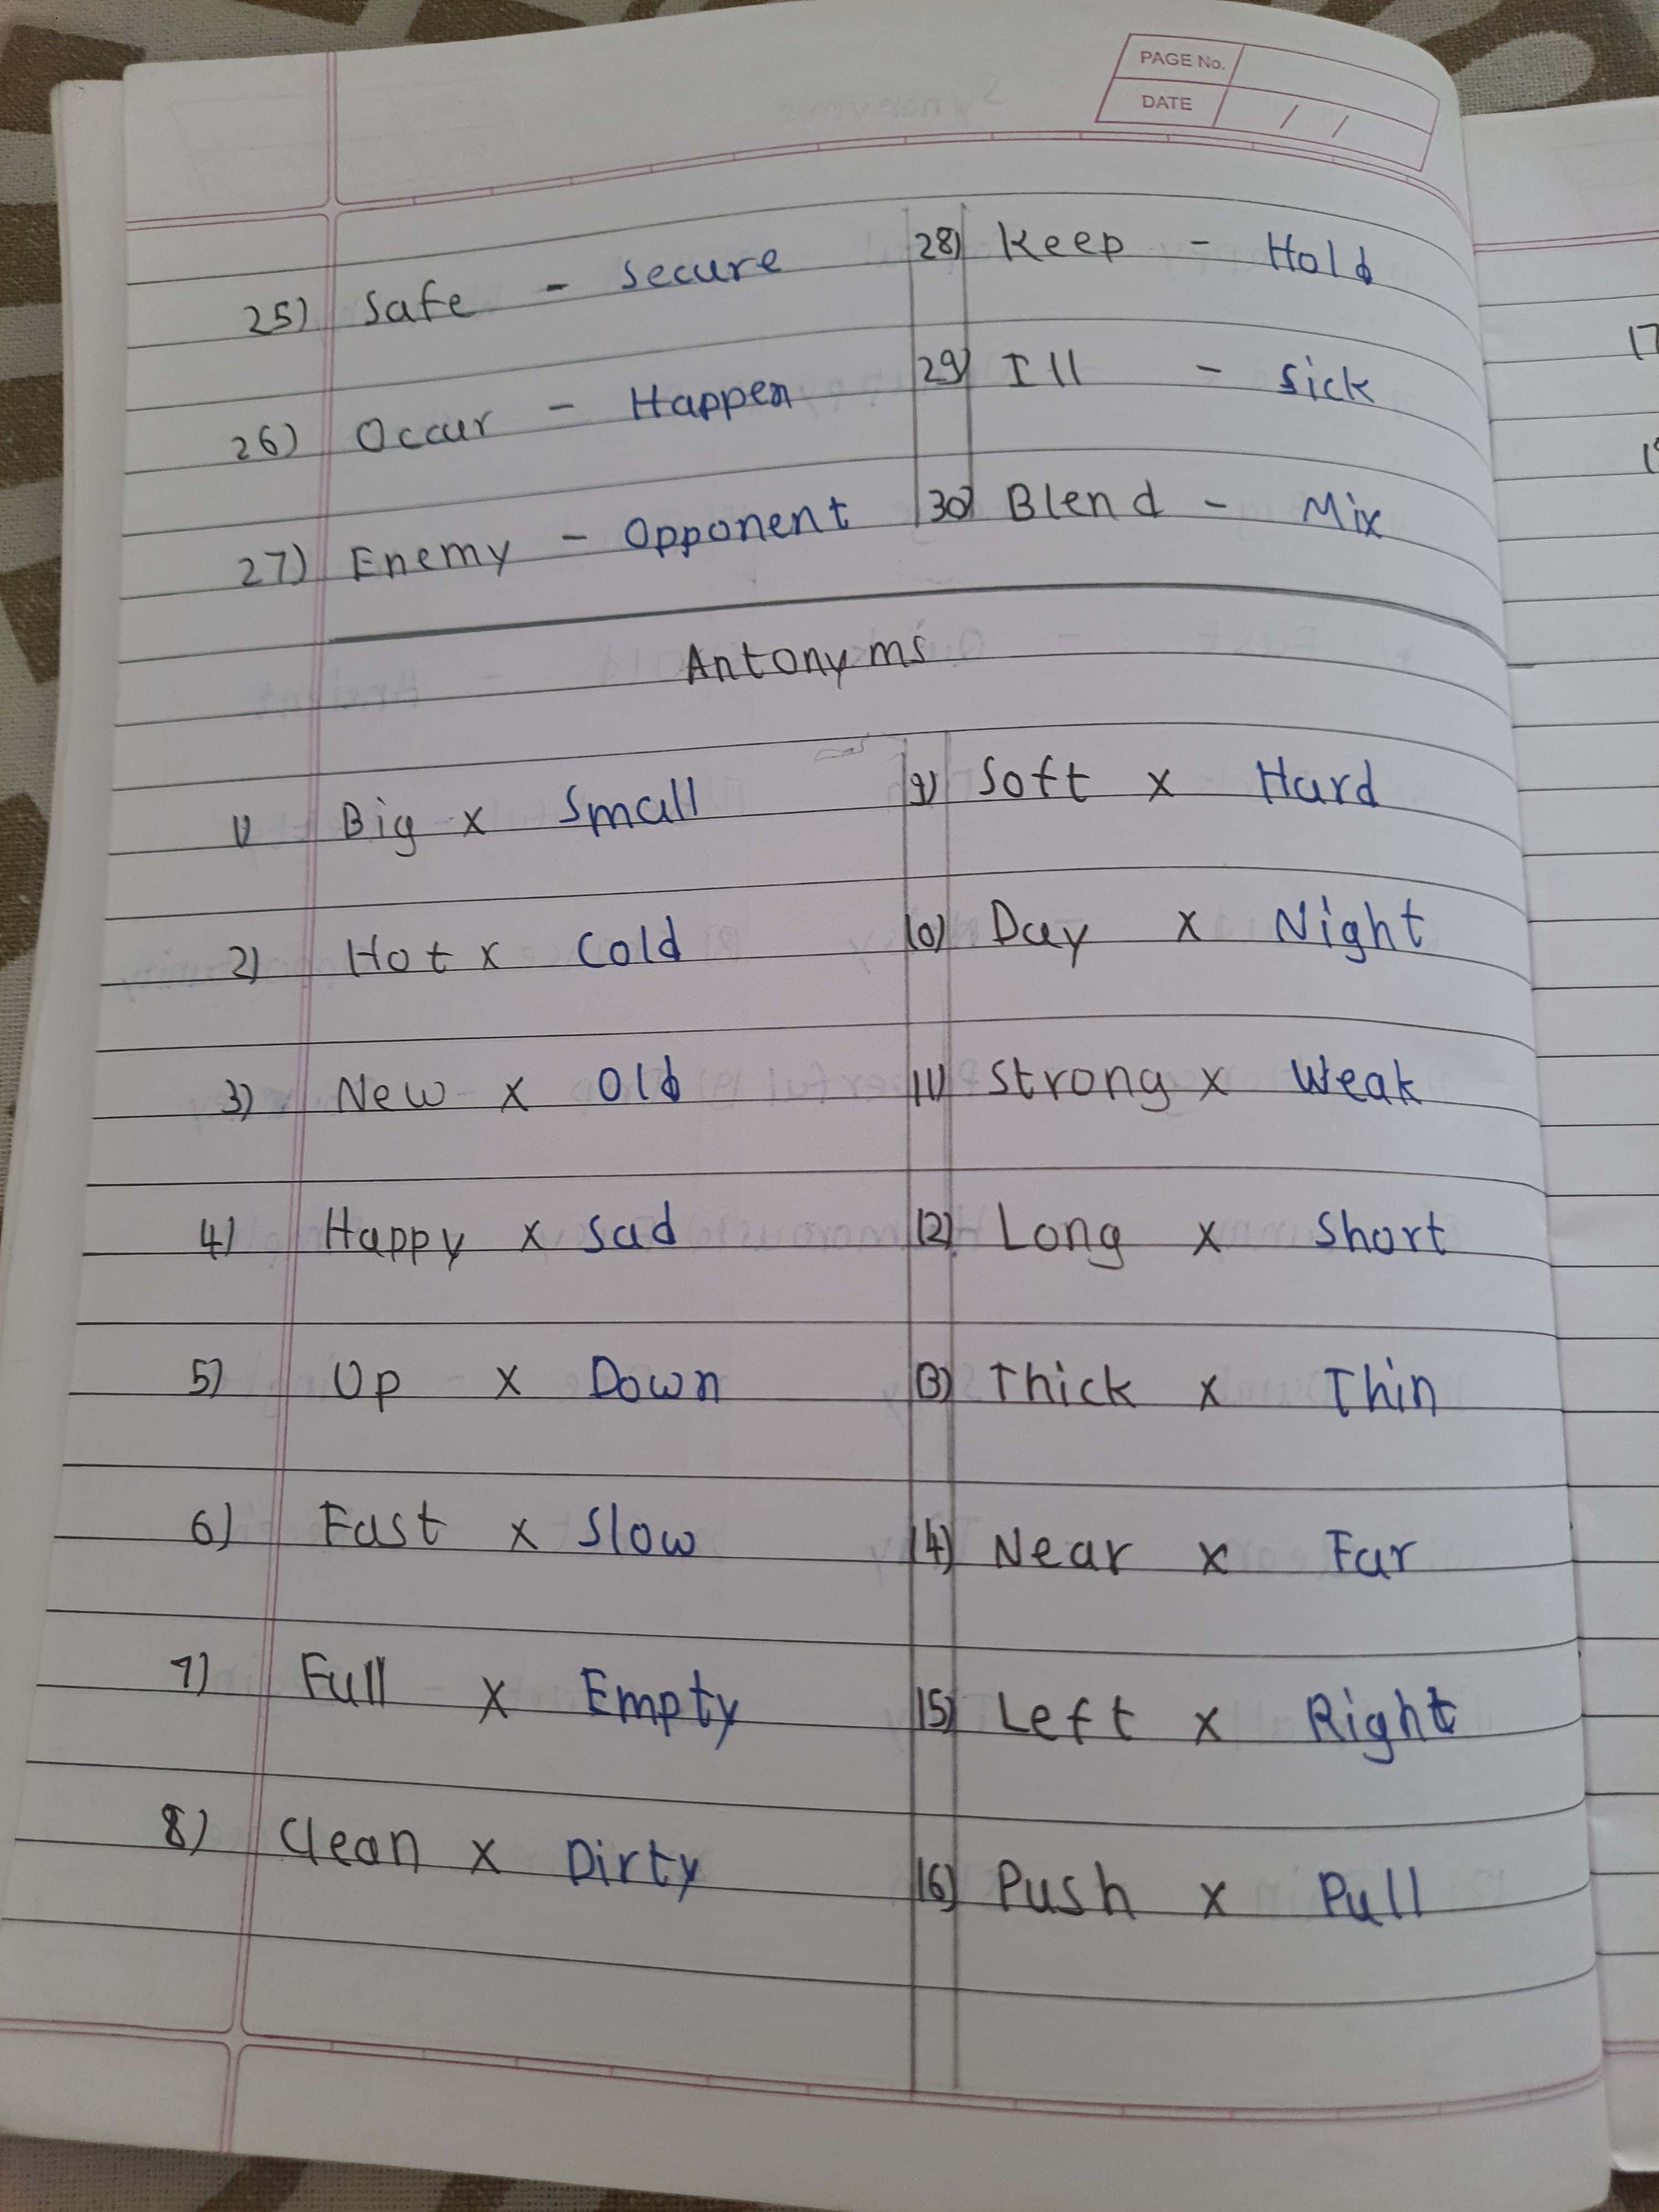 PAGE No.
DATE / /
25) Safe - Secure
26) Occur - Happen
27) Enemy - Opponent
28) Keep - Hold
29) Ill - Sick
30) Blend - Mix
Antonyms
1) Big x Small
2) Hot x Cold
3) New x Old
4) Happy x Sad
5) Up x Down
6) Fast x Slow
7) Full x Empty
8) Clean x Dirty
9) Soft x Hard
10) Day x Night
11) Strong x Weak
12) Long x Short
13) Thick x Thin
14) Near x Far
15) Left x Right
16) Push x Pull
17